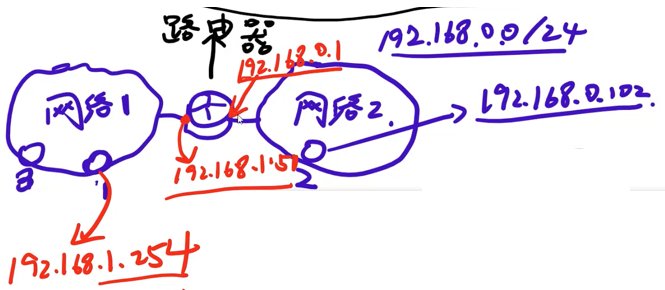 路由器
192.168.0.0/24
192.168.0.1
网络1
网络2
192.168.0.102
3
1
192.168.1.51
2
192.168.1.254